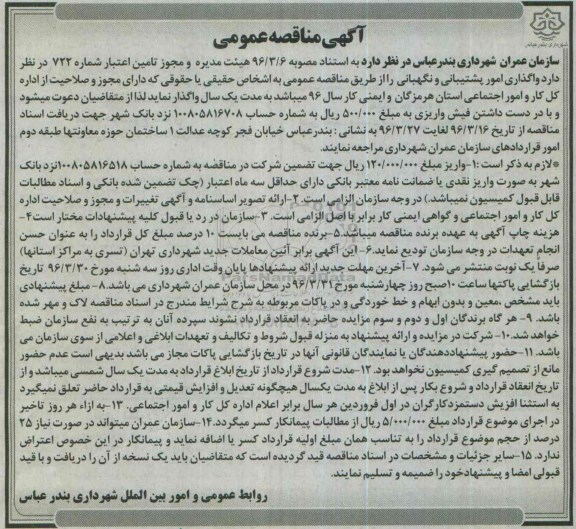 آگهی مناقصه عمومی
شهرداری بندرعباس
سازمان عمران شهرداری بندرعباس در نظر دارد به استناد مصوبه ۹۶/۳/۶ هیئت مدیره و مجوز تامین اعتبار شماره ۷۲۲ در نظر
دارد واگذاری امور پشتیبانی و نگهبانی را از طریق مناقصه عمومی به اشخاص حقیقی یا حقوقی که دارای مجوز و صلاحیت از اداره
کل کار و امور اجتماعی استان هرمزگان و ایمنی کار سال ۹۶ میباشد به مدت یک سال واگذار نماید لذا از متقاضیان دعوت میشود
و با در دست داشتن فیش واریزی به مبلغ ۵۰۰/۰۰۰ ریال به شماره حساب ۱۰۰۸۰۵۸۱۶۷۰۸ نزد بانک شهر جهت دریافت اسناد
مناقصه از تاریخ ۹۶/۳/۱۶ لغایت ۹۶/۳/۲۷ به نشانی : بندرعباس خیابان فجر کوچه عدالت ۱ ساختمان حوزه معاونتها طبقه دوم
امور قراردادهای سازمان عمران شهرداری مراجعه نمایند.
*لازم به ذکر است :۱-واریز مبلغ ۱۲۰/۰۰۰/۰۰۰ ریال جهت تضمین شرکت در مناقصه به شماره حساب ۱۰۰۸۰۵۸۱۶۵۱۸نزد بانک
شهر به صورت واریز نقدی یا ضمانت نامه معتبر بانکی دارای حداقل سه ماه اعتبار (چک تضمین شده بانکی و اسناد مطالبات
قابل قبول کمیسیون نمیباشد.) در وجه سازمان الزامی است. ۲-ارائه تصویر اساسنامه و آگهی تغییرات و مجوز و صلاحیت اداره
کل کار و امور اجتماعی و گواهی ایمنی کار برابر با اصل الزامی است. ۳-سازمان در رد یا قبول کلیه پیشنهادات مختار است۴-
هزینه چاپ آگهی به عهده برنده مناقصه میباشد۵-برنده مناقصه می بایست ۱۰ درصد مبلغ کل قرارداد را به عنوان حسن
انجام تعهدات در وجه سازمان تودیع نماید۶-این آگهی برابر آئین معاملات جدید شهرداری تهران (تسری به مراکز استانها)
صرفاً یک نوبت منتشر می شود. ۷-آخرین مهلت جدید ارائه پیشنهادها پایان وقت اداری روز سه شنبه مورخ ۹۶/۳/۳۰ تاریخ
بازگشایی پاکتها ساعت ۱۰صبح روز چهارشنبه مورخ ۹۶/۳/۳۱ در محل سازمان عمران شهرداری می باشد.۸-مبلغ پیشنهادی
باید مشخص ،معین و بدون ابهام و خط خوردگی و در پاکات مربوطه به شرح شرایط مندرج در اسناد مناقصه لاک و مهر شده
باشد. ۹- هر گاه برندگان اول و دوم و سوم مزایده حاضر به انعقاد قرارداد نشوند سپرده آنان به ترتیب به نفع سازمان ضبط
خواهد شد.۱۰-شرکت در مزایده و ارائه پیشنهاد به منزله قبول شروط و تکالیف و تعهدات ابلاغی و اعلامی از سوی سازمان می
باشد.۱۱-حضور پیشنهاددهندگان یا نمایندگان قانونی آنها در تاریخ بازگشایی پاکات مجاز می باشد بدیهی است عدم حضور
مانع از تصمیم گیری کمیسیون نخواهد بود. ۱۲-مدت شروع قرارداد از تاریخ ابلاغ قرارداد به مدت یک سال شمسی میباشد و از
تاریخ انعقاد قرارداد و شروع بکار پس از ابلاغ به مدت یکسال هیچگونه تعدیل و افزایش قیمتی به قرارداد حاضر تعلق نمیگیرد
به استثنا افزیش دستمزدکارگران در اول فروردین هر سال برابر اعلام اداره کل کار و امور اجتماعی. ۱۳-به ازاء هر روز تاخیر
در اجرای موضوع قرارداد مبلغ ۵/۰۰۰/۰۰۰ ریال از مطالبات پیمانکار کسر میگردد.۱۴-سازمان عمران میتواند در صورت نیاز ۲۵
درصد از حجم موضوع قرارداد را به تناسب همان مبلغ اولیه قرارداد کسر یا اضافه نماید و پیمانکار در این خصوص اعتراض
ندارد. ۱۵-سایر جزئیات و مشخصات در اسناد مناقصه قید گردیده است که متقاضیان باید یک نسخه از آن را دریافت و با قید
قبولی امضا و پیشنهادخود را ضمیمه و تسلیم نمایند.
روابط عمومی و امور بین الملل شهرداری بندر عباس